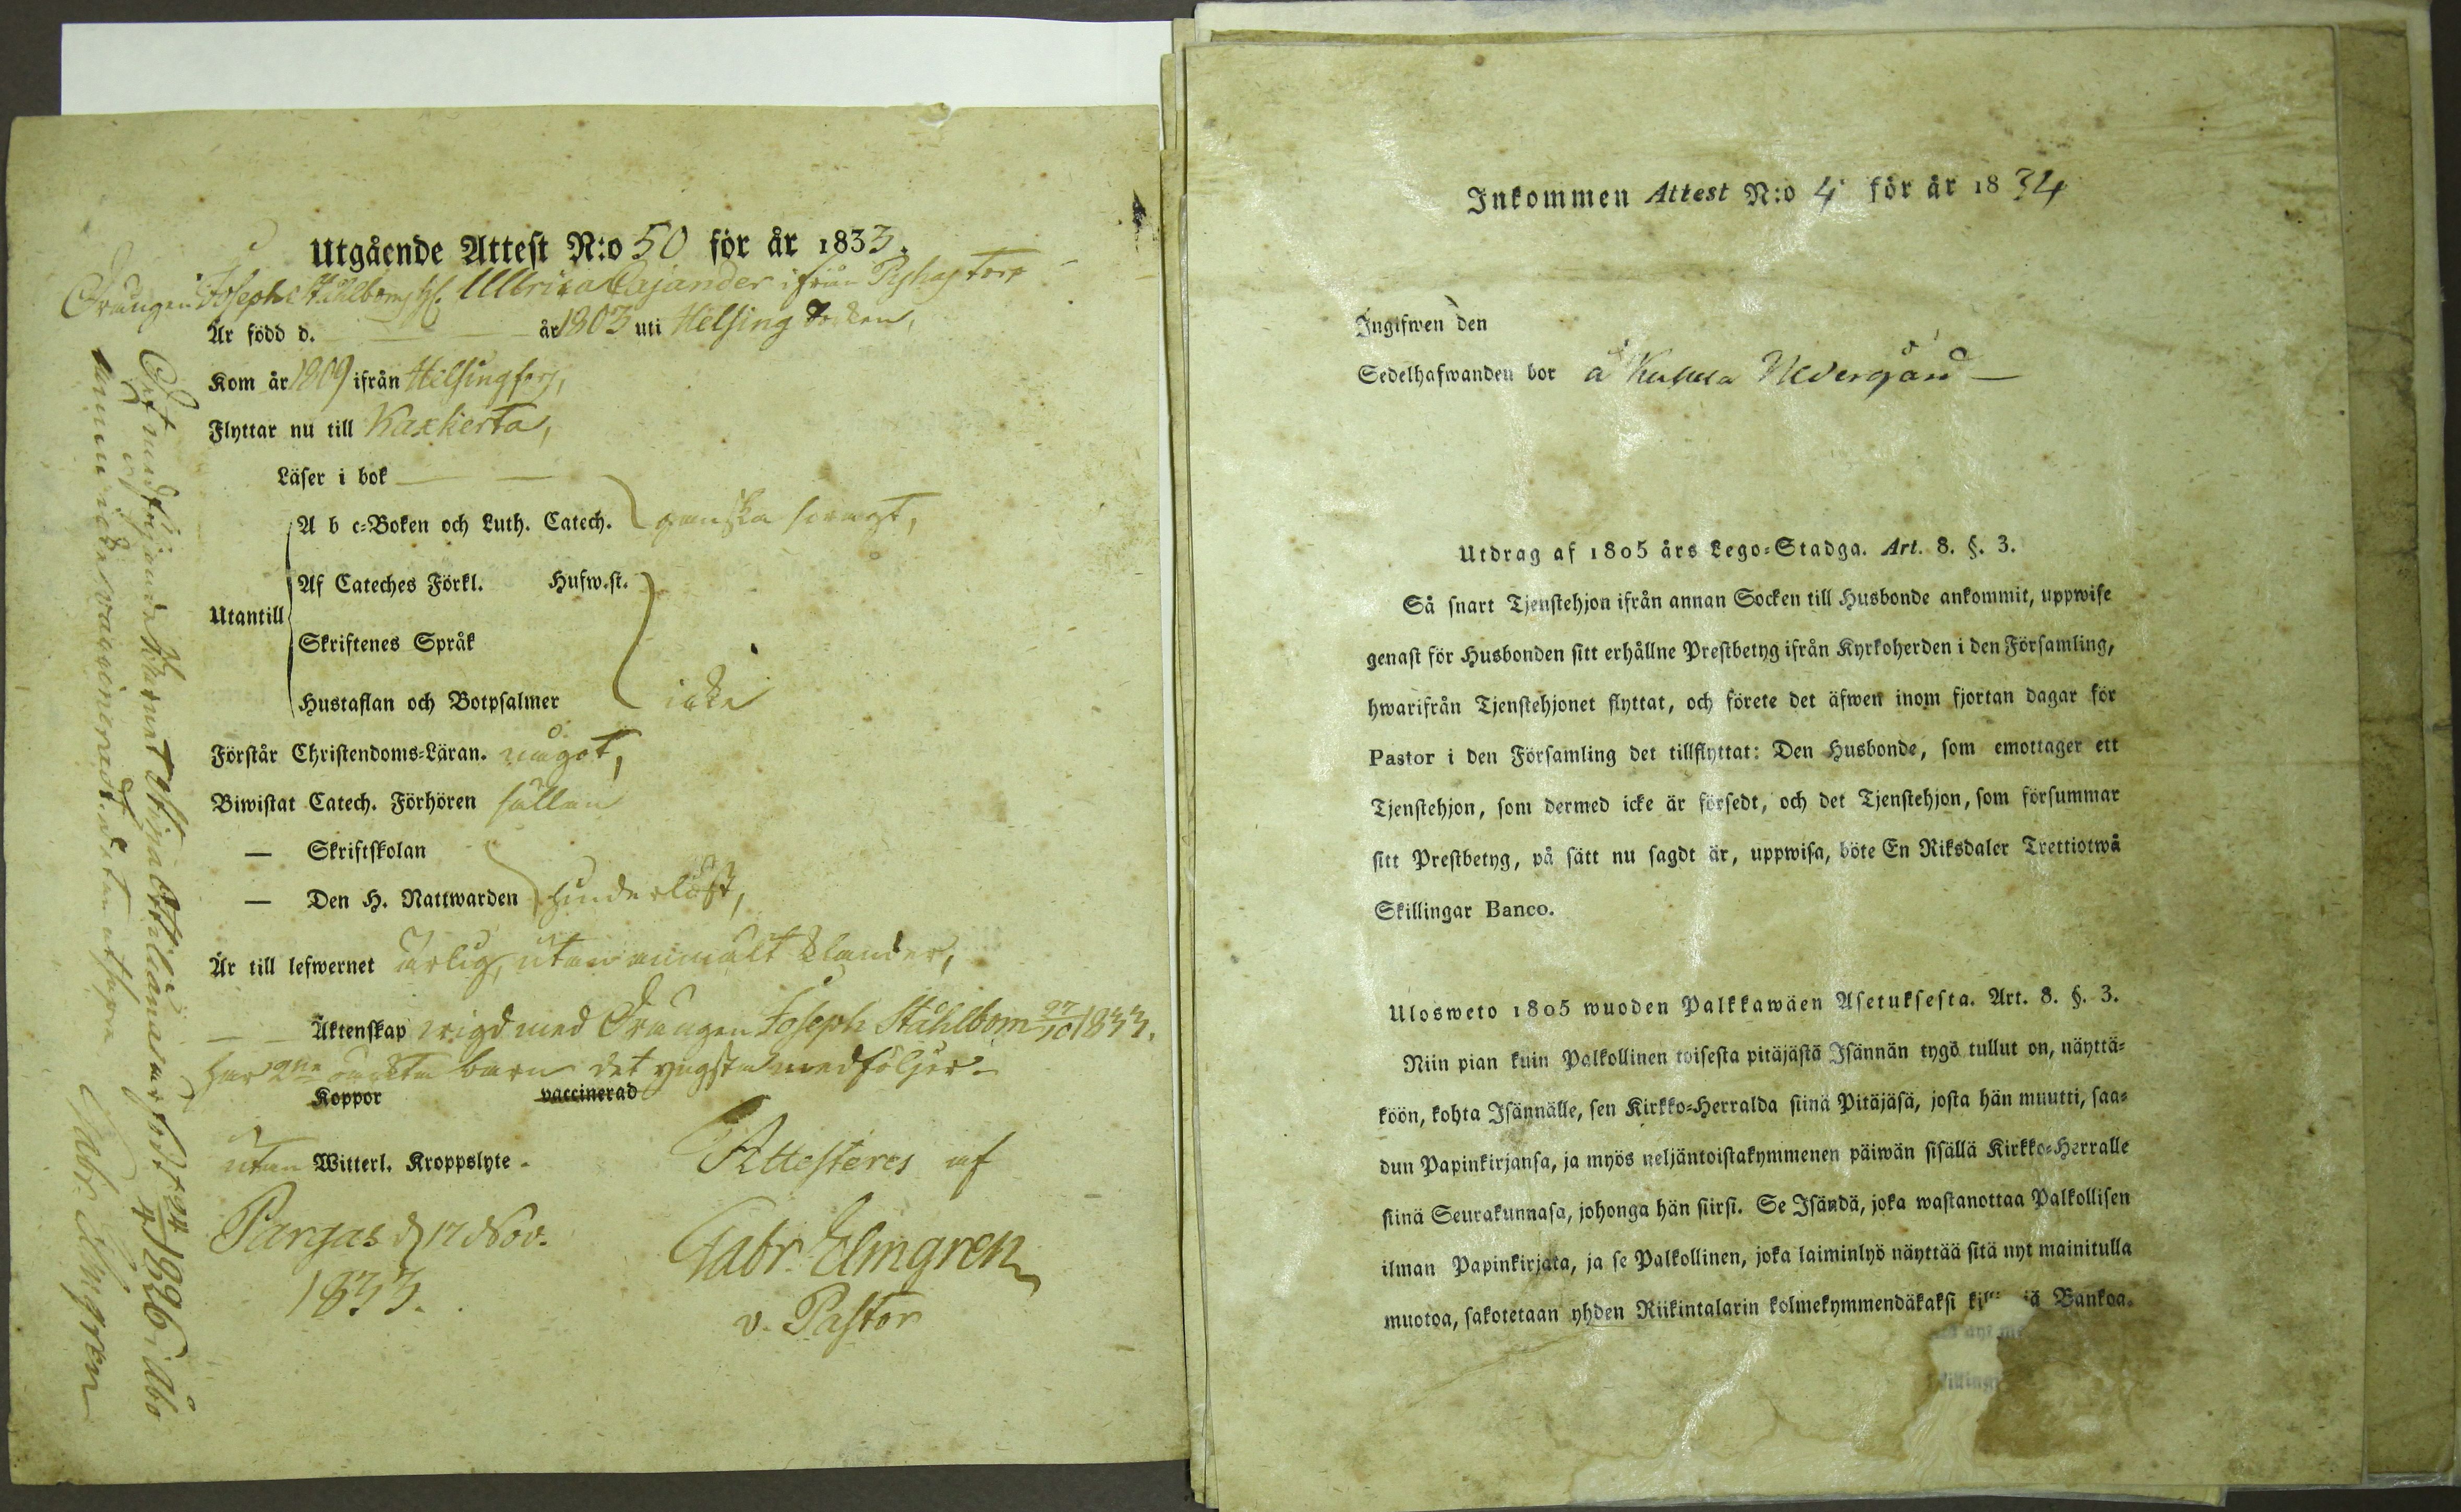 Utgående Attest N:o 50 för år 1833.
Drängen Joseph Ståhlboms h. Ullrica Cajander ifrån Pyhas torp
Är född d. — — år 1803 uti Helsing Socken,
Kom år 1809 ifrån Helsingfors,
Flyttar nu till Kaxkerta,
Läser i bok — —
A b c-Boken och Luth. Catech. ganska svagt,
Af Cateches Förkl. Hufw.st.
Utantill
Skriftenes Språk
Hustaflan och Botpsalmer icke
Förstår Christendoms-Läran. något,
Biwistat Catech. Förhören sällan
— Skriftskolan
— Den H. Nattwarden hinderlöst,
Är till lefwernet ärlig, utan anmält klander,
— — Äktenskap wigd med Drängen Joseph Ståhlbom 27/10 1833.
har 2ne oäkta barn det yngsta medföljer.
Koppor vaccinerad
utan Witterl. Kroppslyte.
Attesteres af
Pargas d 17 Nov.
1833.
Gabr. Elmgren
v. Pastor
Det medföljande barnet Ottiliana är född 24/4 1826 i Åbo
vaccinerad utan
Gabr. Elmgren
Inkommen Attest N:o 4 för år 1834
Ingifwen den
Sedelhafwanden bor å Nedergård —
Utdrag af 1805 års Lego-Stadga. Art. 8. §. 3.
Så snart Tjenstehjon ifrån annan Socken till Husbonde ankommit, uppwise
genast för Husbonden sitt erhållne Prestbetyg ifrån Kyrkoherden i den Församling,
hwarifrån Tjenstehjonet flyttat, och förete det äfwen inom fjortan dagar för
Pastor i den Församling det tillflyttat: Den Husbonde, som emottager ett
Tjenstehjon, som dermed icke är försedt, och det Tjenstehjon, som försummar
sitt Prestbetyg, på sätt nu sagdt är, uppwisa, böte En Riksdaler Trettiotwå
Skillingar Banco.
Ulosweto 1805 wuoden Palkkawäen Asetuksesta. Art. 8. §. 3.
Niin pian kuin Palkollinen toisesta pitäjästä Isännän tygö tullut on, näyttä-
köön, kohta Isännälle, sen Kirkko-Herralda siinä Pitäjäsä, josta hän muutti, saa-
dun Papinkirjansa, ja myös neljäntoistakymmenen päiwän sisällä Kirkko-Herralle
siinä Seurakunnasa, johonga hän siirsi. Se Isändä, joka wastanottaa Palkollisen
ilman Papinkirjata, ja se Palkollinen, joka laiminlyö näyttää sitä nyt mainitulla
muotoa, sakotetaan yhden Riikintalarin kolmekymmendäkaksi Bankoa.